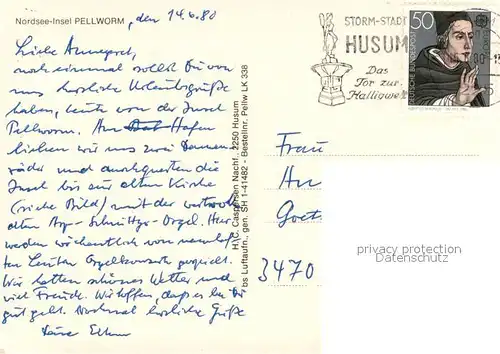 Nordsee-Insel PELLWORM, den 14.6.80
Liebe Annegret,
noch einmal sollst Du von
uns herzliche Urlaubsgrüße
haben, heute von der Insel
Pellworm. Am Hafen
liehen wir uns zwei Damen-
räder und durchquerten die
Insel bis zur alten Kirche
(siehe Bild) mit der wertvollen
alten Arp-Schnittger-Orgel. Hier
werden wöchentlich von namhaf-
ten Leuten Orgelkonzerte gespielt.
Wir hatten schönes Wetter und
viel Freude. Wir hoffen, daß es bei Dir
gut geht. Nochmal herzliche Grüße
Deine
H. W. Caspersen Nachf., 2250 Husum
bs Luftaufn., gen. SH 1-41482 - Bestellnr. Pellw LK 338
STORM-STADT
HUSUM
Das
Tor zur
Halligwe
50
DEUTSCHE BUNDESPOST
Frau
An
Goet
3470
privacy protection
Datenschutz